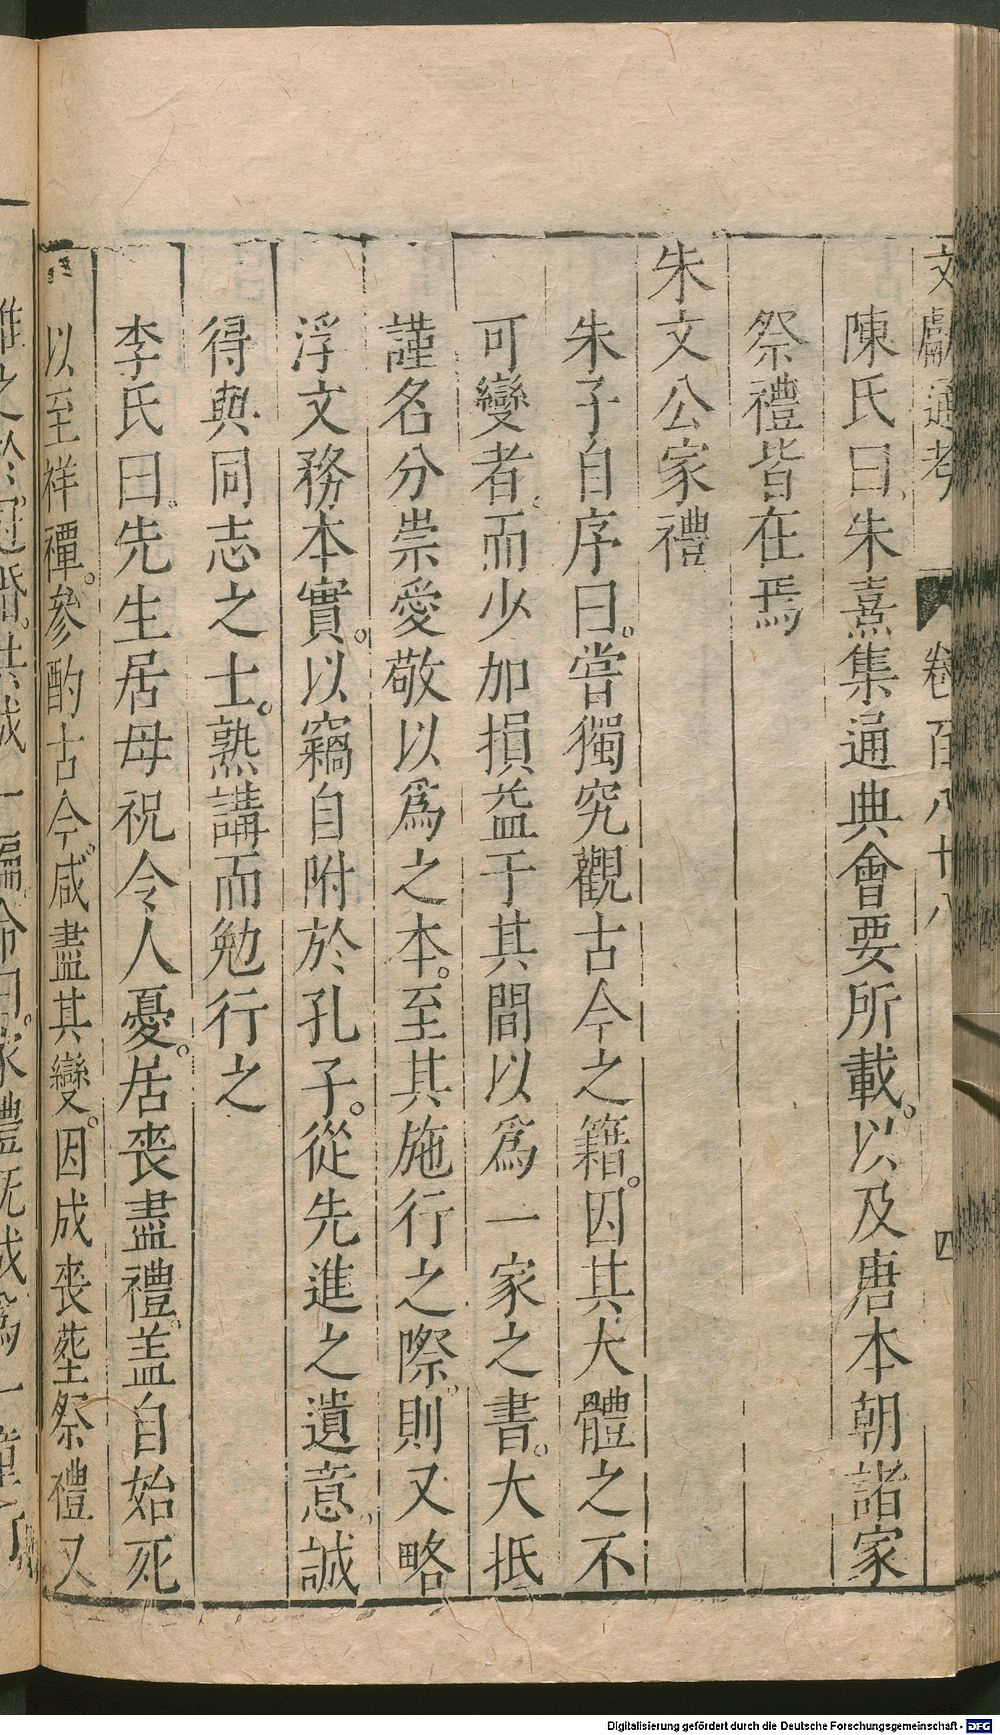 文獻通考 卷百八十八 四
陳氏曰朱熹集通典會要所載。以及唐本朝諸家
祭禮皆在焉
朱文公家禮
朱子自序曰。嘗獨究觀古今之籍。因其大體之不
可變者。而少加損益于其間以爲一家之書。大抵
謹名分崇愛敬以爲之本。至其施行之際。則又略
浮文務本實。以竊自附於孔子。從先進之遺意。誠
得與同志之士。熟講而勉行之
李氏曰。先生居母祝令人憂。居喪盡禮。盖自始死
以至祥禫。參酌古今。咸盡其變。因成喪塟祭禮又
推之於冠婚。共成一編。命曰。家禮既成爲一童
Digitalisierung gefördert durch die Deutsche Forschungsgemeinschaft - DFG